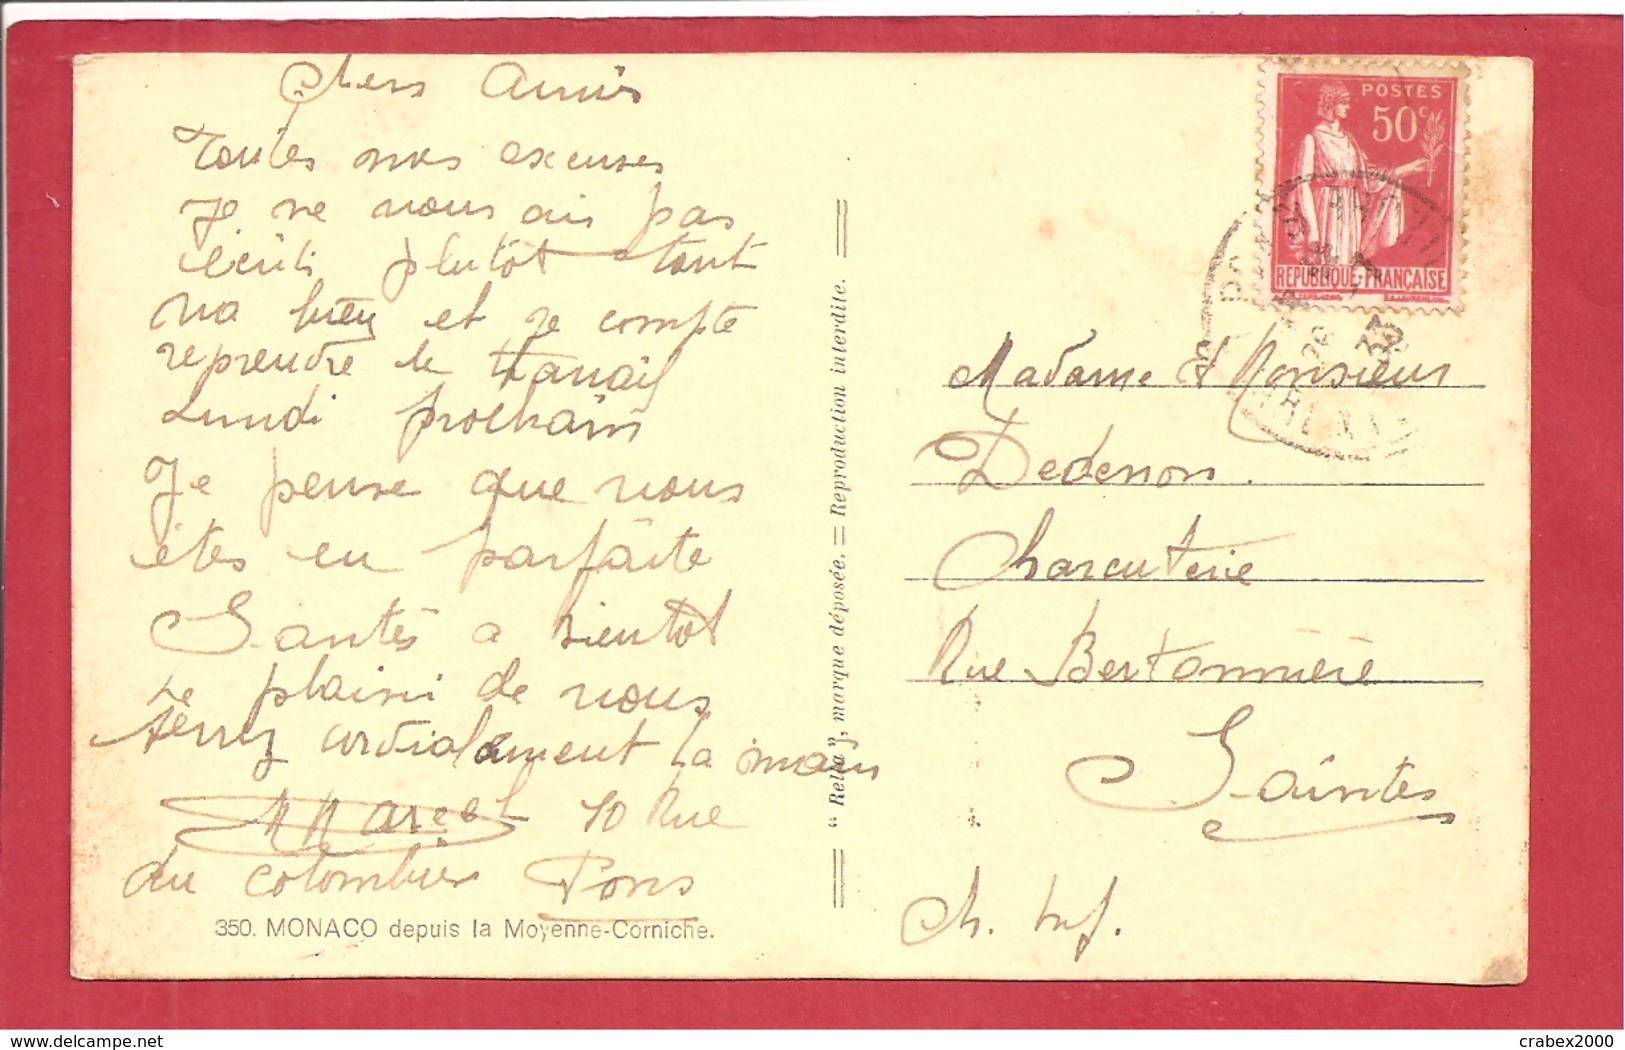 Chers Amis
Toutes mes excuses
Je ne vous ais pas
écrit plutôt tout
va bien et je compte
reprendre le travail
Lundi prochain
Je pense que vous
êtes en parfaite
Santés a bientot
le plaisir de vous
serrez cordialement la main
Marcel 10 Rue
du colombier Pons
350. MONACO depuis la Moyenne-Corniche.
"Rella", marque déposée. = Reproduction interdite.
POSTES
50c
REPUBLIQUE FRANÇAISE
33
Madame et Monsieur
Dedenon.
Charcuterie
Rue Bertonnière
Saintes
Ch. Inf.
crabex2000